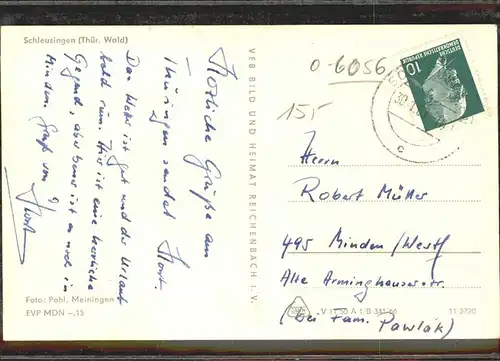 Schleusingen (Thür. Wald)
Herzliche Grüße aus
Thüringen sendet Horst.
Das Wetter ist gut und der Urlaub
bald rum. Hier ist eine herrliche
Gegend, aber bunt ist es noch in
Minden. Gruß von
Horst
Foto: Pohl, Meiningen
EVP MDN –,15
VEB BILD UND HEIMAT REICHENBACH i. V.
0-6056
15,-
DEUTSCHE
DEMOKRATISCHE REPUBLIK
10
Herrn
Robert Müller
495 Minden/Westf
Alte Arminghauserstr.
(bei Fam. Pawlak)
V 11 50 A 1/B 341/66
11 2720